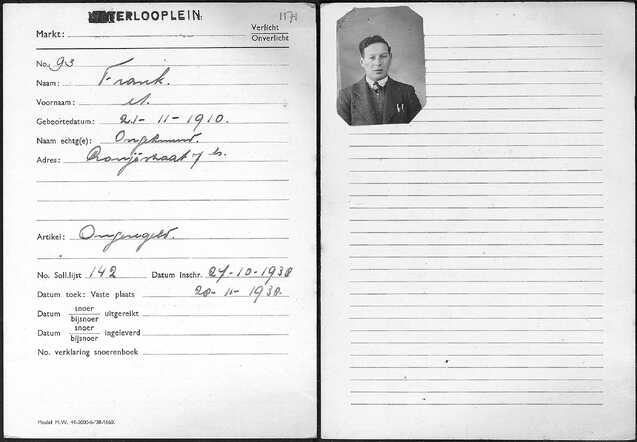 WATERLOOPLEIN. 1171
Markt: Verlicht
Onverlicht
No. 93
Naam: Frank.
Voornaam:
Geboortedatum: 21-11-1910.
Naam echtg(e): Ongehuwd.
Adres: 7 hs.
Artikel: Ongeregeld.
No. Soll.lijst 142 Datum Inschr. 27-10-1938
Datum toek: Vaste plaats 20-11-1938.
Datum snoer
bijsnoer uitgereikt
Datum snoer
bijsnoer ingeleverd
No. verklaring snoerenboek
Model M.W.